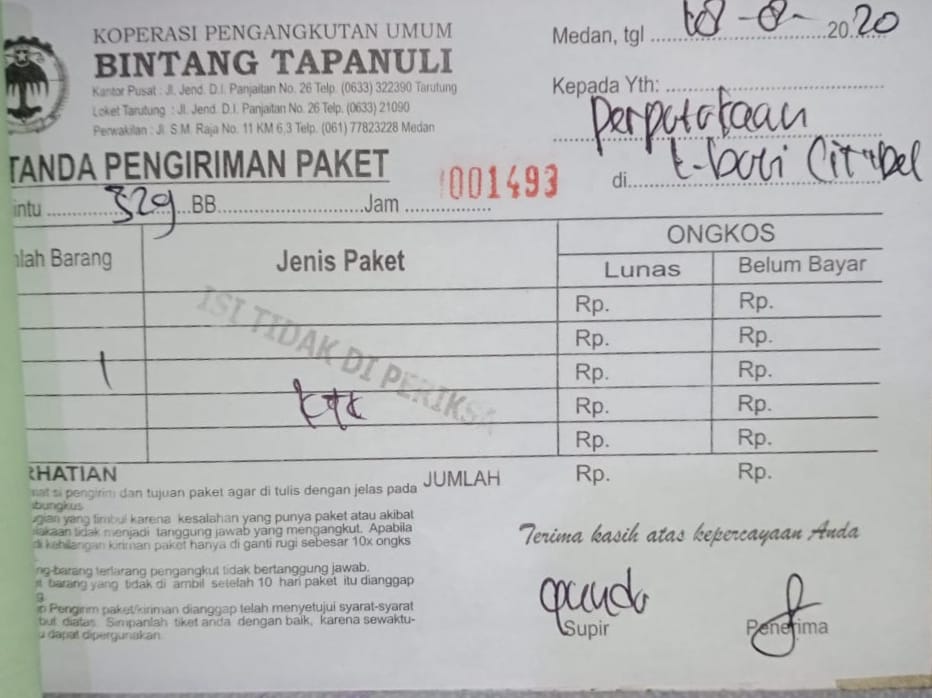 KOPERASI PENGANGKUTAN UMUM
BINTANG TAPANULI
Kantor Pusat : Jl. Jend. D.I. Panjaitan No. 26 Telp. (0633) 322390 Tarutung
Loket Tarutung : Jl. Jend. D.I. Panjaitan No. 26 Telp. (0633) 21090
Perwakilan : Jl. S.M. Raja No. 11 KM 6,3 Telp. (061) 77823228 Medan
Medan, tgl 20.20
Kepada Yth:
di
TANDA PENGIRIMAN PAKET
001493
intu 329 BB Jam
lah Barang Jenis Paket ONGKOS
Lunas Belum Bayar
Rp. Rp.
Rp. Rp.
1 Rp. Rp.
Rp. Rp.
Rp. Rp.
ISI TIDAK DI PERIKSA
JUMLAH Rp. Rp.
RHATIAN
mat si pengirim dan tujuan paket agar di tulis dengan jelas pada
bungkus
ugian yang timbul karena kesalahan yang punya paket atau akibat
lakaan tidak menjadi tanggung jawab yang mengangkut. Apabila
di kehilangan kiriman paket hanya di ganti rugi sebesar 10x ongks
ng-barang terlarang pengangkut tidak bertanggung jawab.
t barang yang tidak di ambil setelah 10 hari paket itu dianggap
g.
n Pengirim paket/kiriman dianggap telah menyetujui syarat-syarat
but diatas. Simpanlah tiket anda dengan baik, karena sewaktu-
u dapat dipergunakan.
Terima kasih atas kepercayaan Anda
Supir Penerima